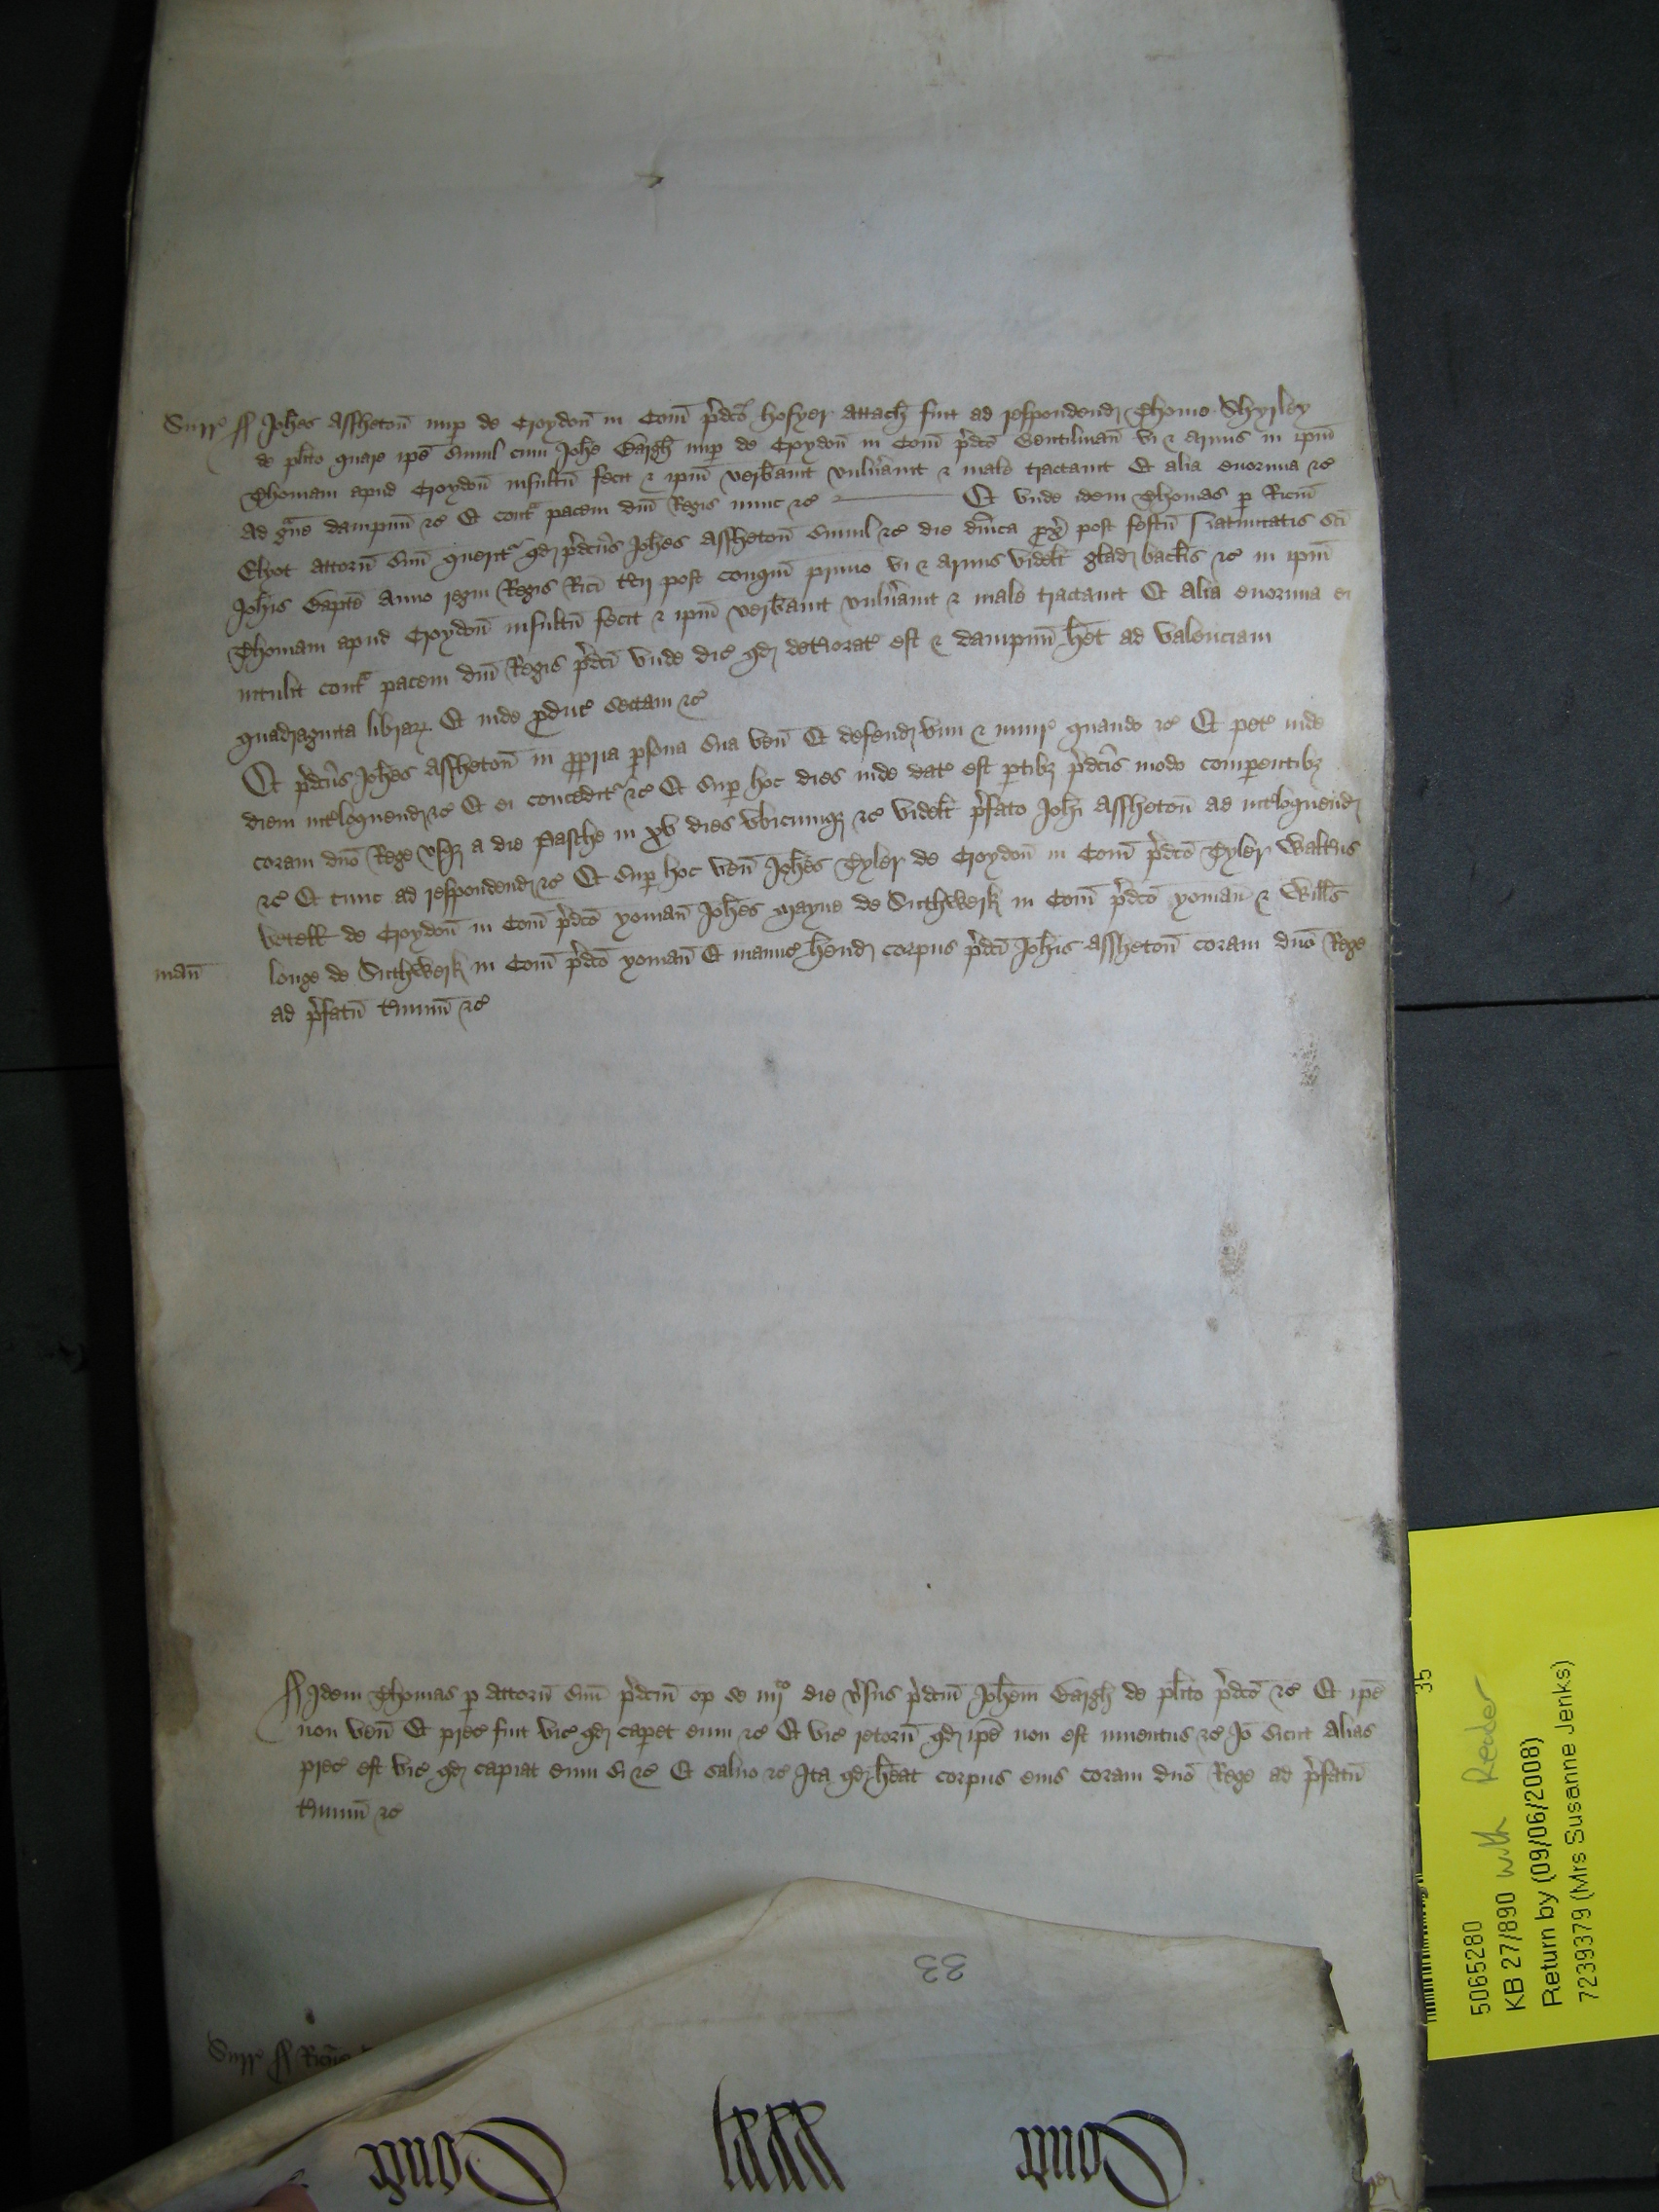 Surr~ ss Joh̄es Assheton̄ nup de Croydon̄ in Com̄ p̄dc̄o hosyer attach̄ fuit ad respondend Thome Shyrley
de pl̄ito quare ip̄e simul cum Joh̄e Bargh̄ nup de Croydon̄ in Com̄ p̄dc̄o Gentilman̄ vi & armis in ip̄m
Thomam apud Croydon̄ insultū fecit & ip̄m verb̄avit vuln̄avit & male tractavit Et alia enormia &c
ad gᵃue dampnū &c Et contᵃ pacem dn̄i Regis nunc &c Et unde idem Thomas p Ric̄m
Elyot attorn̄ suū queritʳ qd p̄dc̄us Joh̄es Assheton̄ simul &c die dn̄ica px̄ post festū Natiuitatis sc̄i
Joh̄is Bapt̄e Anno regni Regis Ric̄i t̄cij post conqm̄ primo vi & armis videl̄t glad bacl̄is &c in ip̄m
Thomam apud Croydon̄ insultū fecit & ip̄m verb̄avit vuln̄avit & male tractavit Et alia enormia ei
intulit contᵃ pacem dn̄i Regis p̄dc̄i unde dic̄ qd det̄iorat̄ est & dampnū h̄et ad valenciam
quadraginta librar Et inde pduc̄ sectam &c
Et p̄dc̄us Joh̄es Assheton̄ in ppria psona sua ven̄ Et defend vim & iniur̄ quando &c Et pet̄ inde
diem int̄loquend &c Et ei conceditʳ &c Et sup hoc dies inde dat̄ est ptibȝ p̄dc̄is modo compentibȝ
coram dn̄o Rege usqȝ a die Pasche in xv dies ubicumqȝ &c videl̄t p̄fato Joh̄i Assheton̄ ad int̄loquend
&c Et tunc ad respondend &c Et sup hoc ven̄ Joh̄es Tyler de Croydon̄ in Com̄ p̄dc̄o Tyler Walt̄us
Betell̄ de Croydon̄ in Com̄ p̄dc̄o yoman̄ Joh̄es Mayne de Suthwerk in Com̄ p̄dc̄o yoman̄ & Will̄s
man̄ longe de Suthwerk in Com̄ p̄dc̄o yoman̄ Et manuc̄ h̄end corpus p̄dc̄i Joh̄is Assheton̄ coram dn̄o Rege
ad p̄fatū t̄minū &c
ss Idem Thomas p attorn̄ suū p̄dc̄m op̄ se iiijᵒ die v̄sus p̄dc̄m Joh̄em Bargh̄ de pl̄ito p̄dc̄o &c Et ip̄e
non ven̄ Et prec̄ fuit vic̄ qd capet eum &c Et vic̄ retorn̄ qd ip̄e non est inuentus &c Iō sicut alias
prec̄ est vic̄ qd capiat eum si &c Et saluo &c Ita qd h̄eat corpus eius coram dn̄o Rege ad p̄fatū
t̄minū &c
33
Surr~ ss Ric̄us
5065280 35
KB 27/890 with Reader
Return by (09/06/2008)
7239379 (Mrs Susanne Jenks)